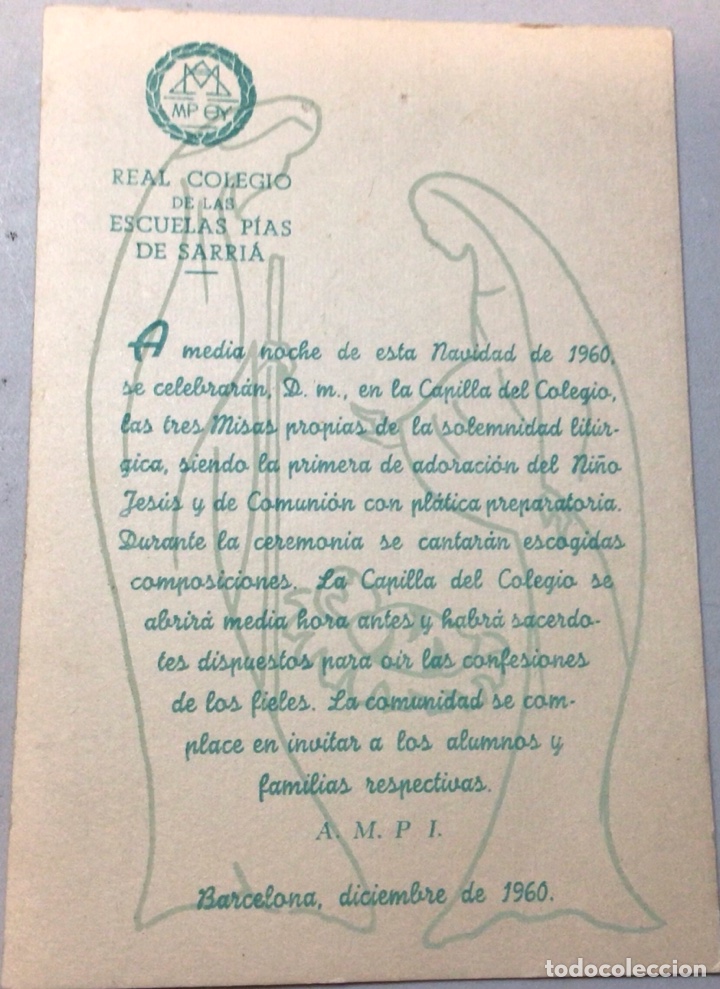 MP ΘY
REAL COLEGIO
DE LAS
ESCUELAS PÍAS
DE SARRIÁ
A media noche de esta Navidad de 1960,
se celebrarán, D. m., en la Capilla del Colegio,
las tres Misas propias de la solemnidad litúr-
gica, siendo la primera de adoración del Niño
Jesús y de Comunión con plática preparatoria.
Durante la ceremonia se cantarán escogidas
composiciones. La Capilla del Colegio se
abrirá media hora antes y habrá sacerdo-
tes dispuestos para oir las confesiones
de los fieles. La comunidad se com-
place en invitar a los alumnos y
familias respectivas.
A. M. P. I.
Barcelona, diciembre de 1960.
todocoleccion